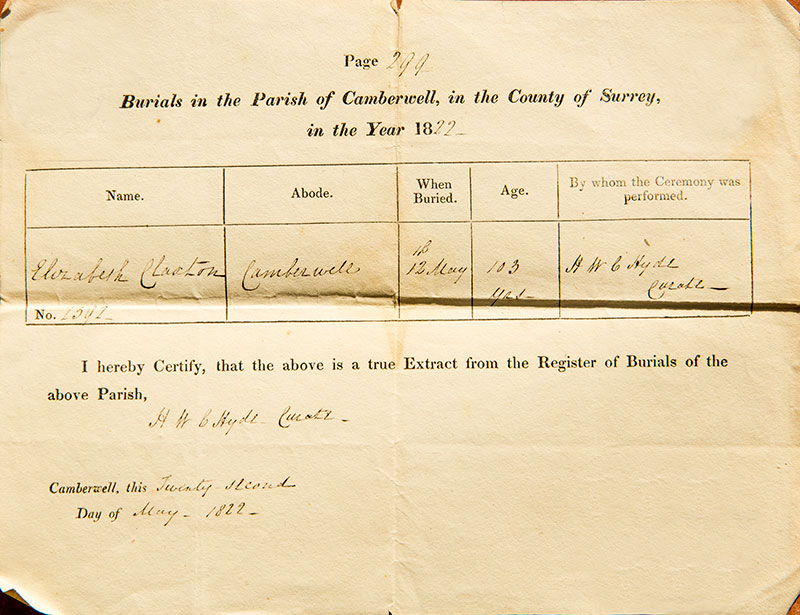 Page 299
Burials in the Parish of Camberwell, in the County of Surrey,
in the Year 1822
Name.
Abode.
When
Buried.
Age.
By whom the Ceremony was
performed.
Elizabeth Claxton
Camberwell
th
12 May
103
Yrs
H W C Hyde
Curate
No. 2392
I hereby Certify, that the above is a true Extract from the Register of Burials of the
above Parish,
H W C Hyde Curate
Camberwell, this Twenty second
Day of May 1822